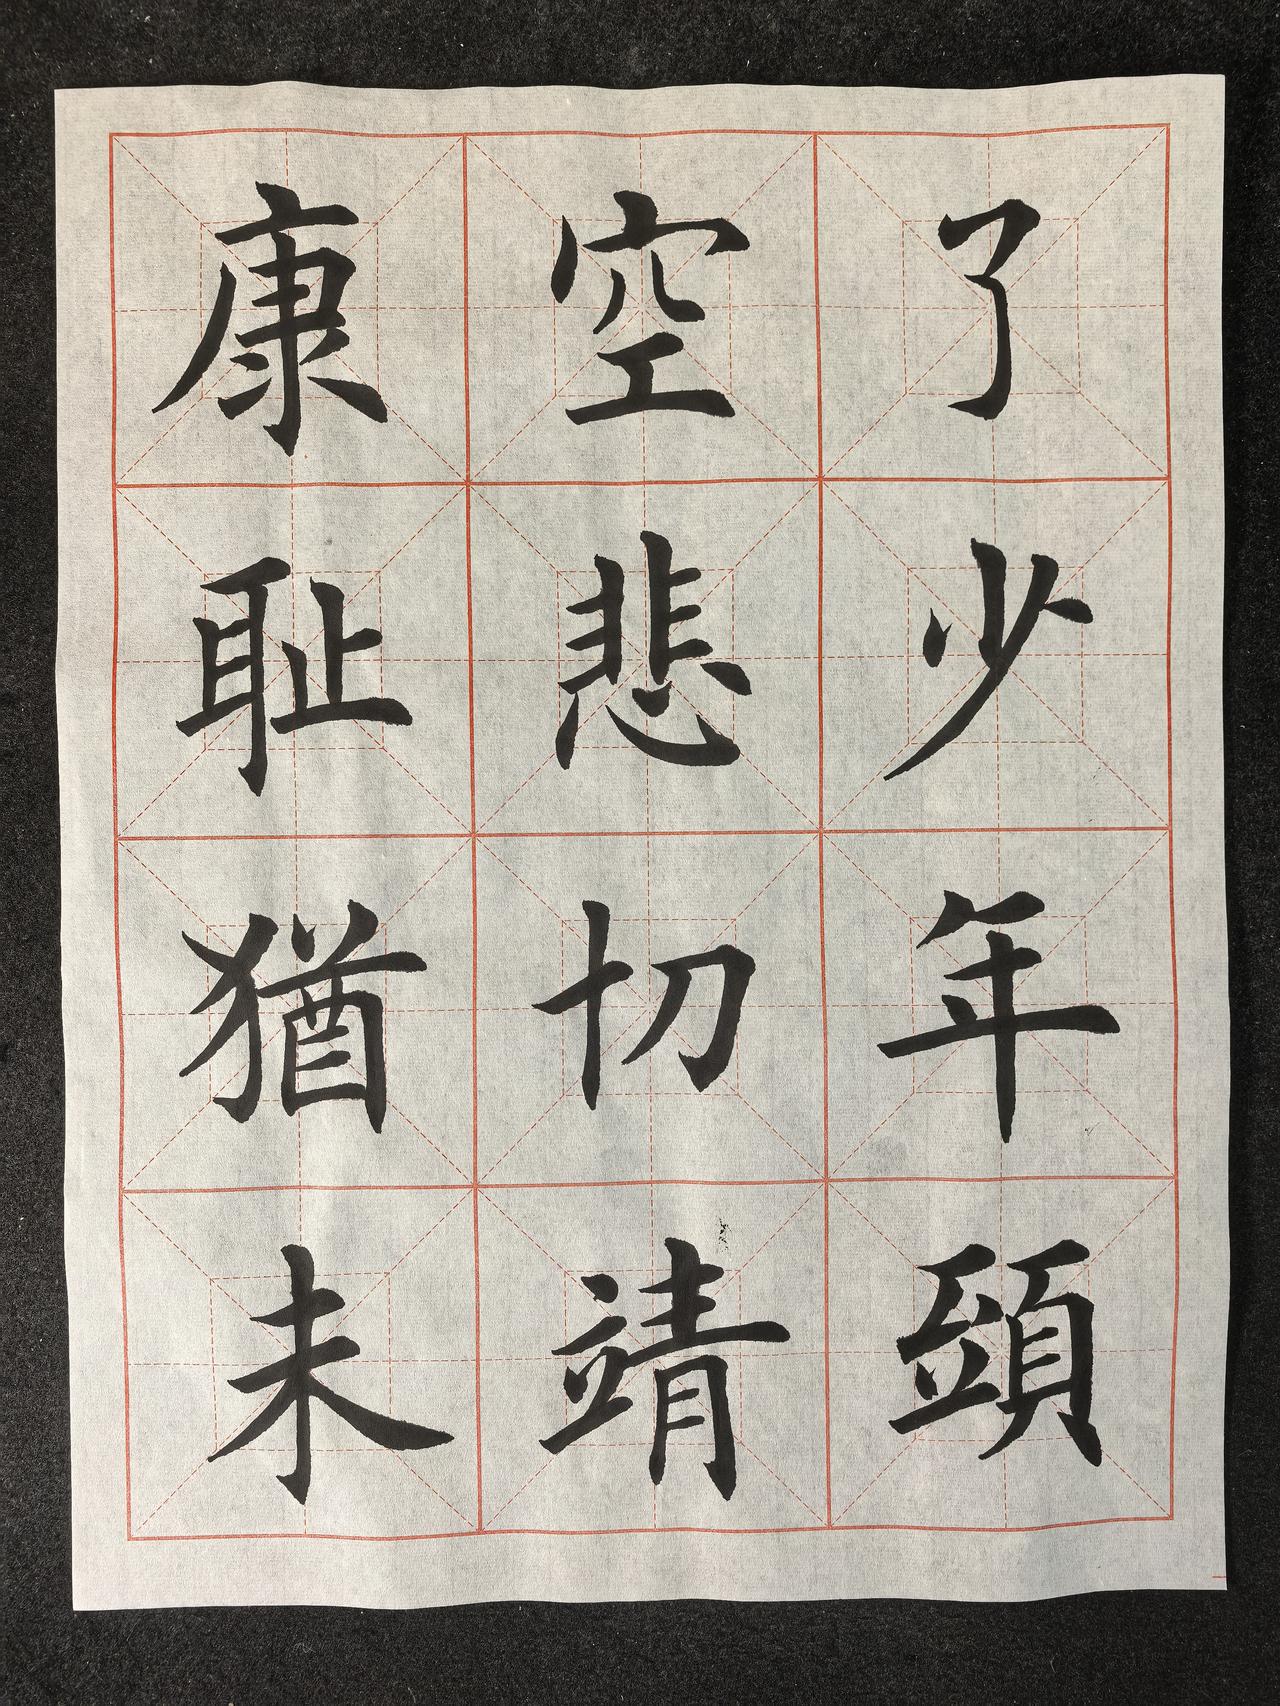 了少年頭
空悲切靖
康恥猶未